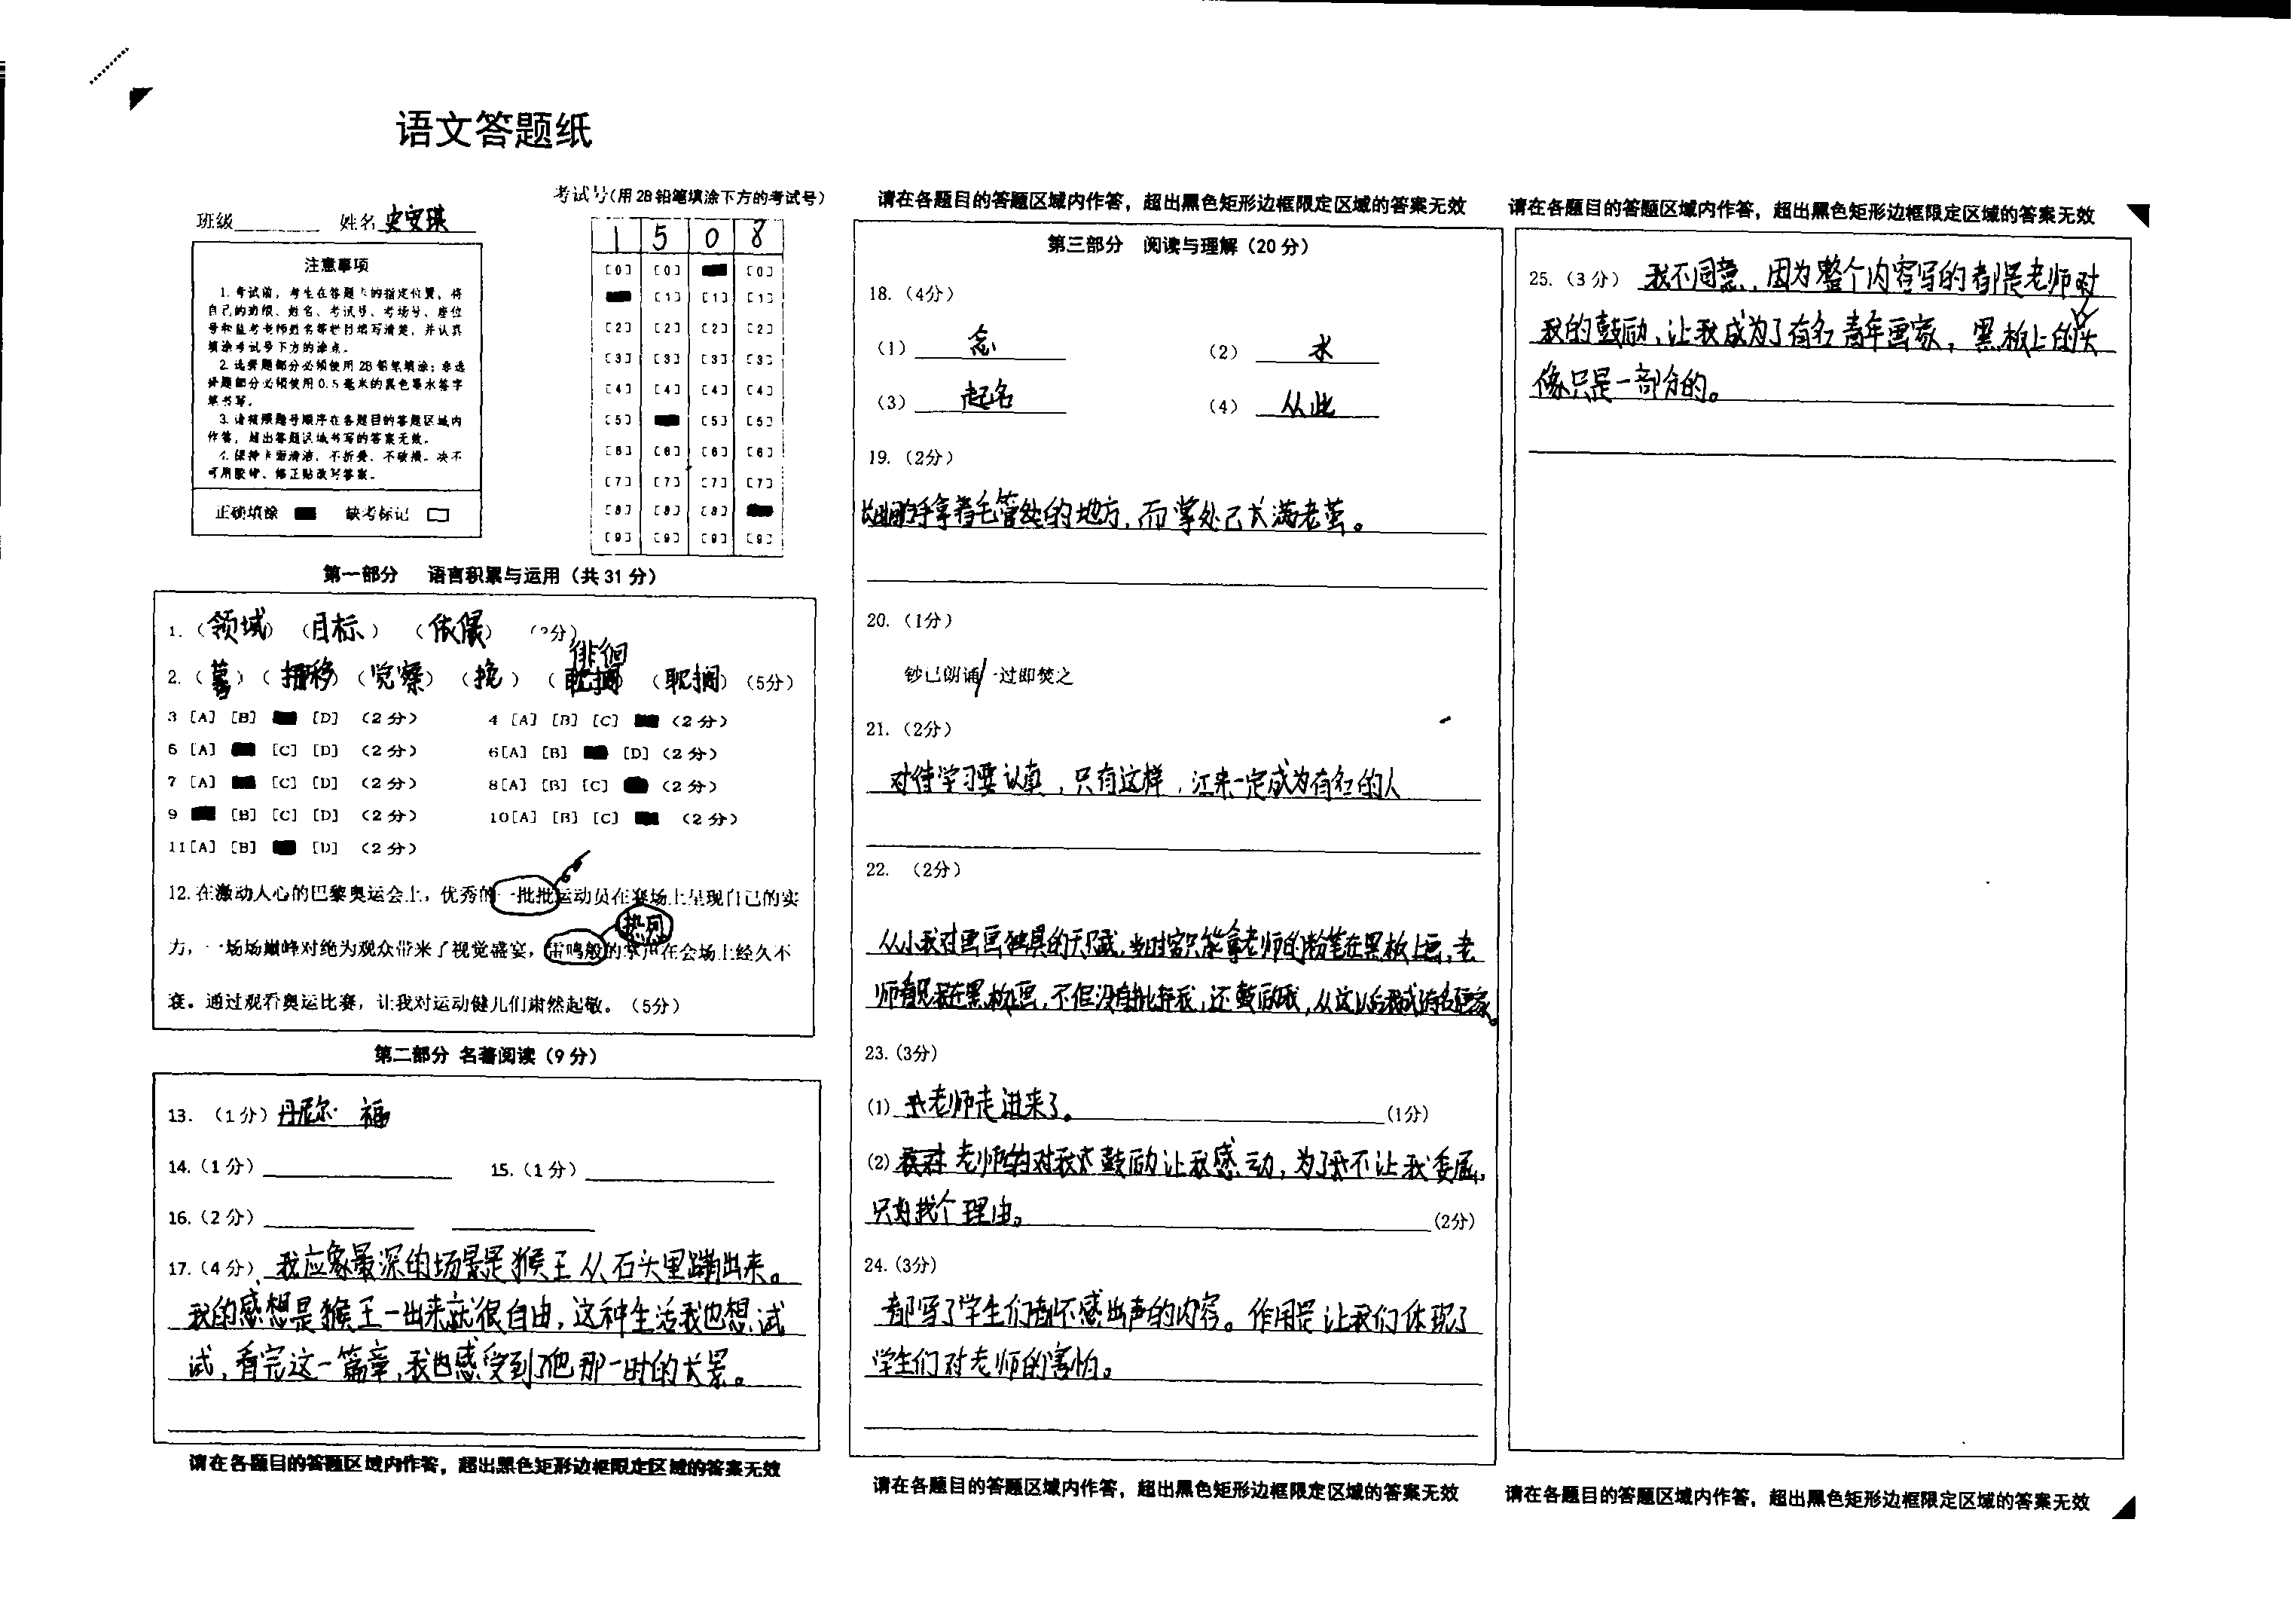 语文答题纸
班级 姓名 史安琪
考试号(用2B铅笔填涂下方的考试号)
1 5 0 8
[0] [0] [0]
[1] [1] [1]
[2] [2] [2] [2]
[3] [3] [3] [3]
[4] [4] [4] [4]
[5] [5] [5]
[6] [6] [6] [6]
[7] [7] [7] [7]
[8] [8] [8]
[9] [9] [9] [9]
注意事项
1.考试前，考生在答题卡的指定位置，将
自己的班级、姓名、考试号、考场号、座位
号和监考老师姓名等栏目填写清楚，并认真
填涂考试号下方的涂点。
2.选择题部分必须使用2B铅笔填涂；非选
择题部分必须使用0.5毫米的黑色墨水签字
笔书写。
3.请按照题号顺序在各题目的答题区域内
作答，超出答题区域书写的答案无效。
4.保持卡面清洁，不折叠、不破损。决不
可用胶带、修正贴改写答案。
正确填涂 缺考标记
第一部分 语言积累与运用（共31分）
1.（领域）（目标）（依偎）
徘徊
2.（蓦）（挪移）（觉察）（挽）（耽搁）（耽搁）（5分）
3 [A] [B] [D] （2分） 4 [A] [B] [C] （2分）
5 [A] [C] [D] （2分） 6[A] [B] [D]（2分）
7 [A] [C] [D] （2分） 8[A] [B] [C] （2分）
9 [B] [C] [D] （2分） 10[A] [B] [C] （2分）
11[A] [B] [D] （2分）
12.在激动人心的巴黎奥运会上，优秀的一批批运动员在赛场上呈现自己的实
热烈
力，一场场巅峰对绝为观众带来了视觉盛宴，雷鸣般的掌声在会场上经久不
衰。通过观看奥运比赛，让我对运动健儿们肃然起敬。（5分）
第二部分 名著阅读（9分）
13.（1分）丹尼尔· 福
14.（1分） 15.（1分）
16.（2分）
17.（4分）我应象最深的场景是猴王从石头里蹦出来。
我的感想是猴王一出来就很自由，这种生活我也想试
试，看完这一篇章，我也感受到了他那一时的长景。
请在各题目的答题区域内作答，超出黑色矩形边框限定区域的答案无效
请在各题目的答题区域内作答，超出黑色矩形边框限定区域的答案无效
第三部分 阅读与理解（20分）
18.（4分）
（1）念 （2）水
（3）起名 （4）从此
19.（2分）
手拿着毛管处的地方，而掌处已长满老茧。
20.（1分）
钞已朗诵/一过即焚之
21.（2分）
对待学习要认真，只有这样，江来一定成为有名的人
22.（2分）
从小我对画画独具的天赋，当时容只能拿老师的粉笔在黑板上画，老
师看见我在黑板画，不但没有批弃我，还鼓励我，从这以后我成有名画家。
23.（3分）
(1)老师走进来了。（1分）
(2)老师的对我太鼓励让我感动，为了不让我委屈，
只好找个理由。（2分）
24.（3分）
都写了学生们都不感出声的内容。作用是让我们体现了
学生们对老师的害怕。
请在各题目的答题区域内作答，超出黑色矩形边框限定区域的答案无效
请在各题目的答题区域内作答，超出黑色矩形边框限定区域的答案无效
25.（3分）我不同意，因为整个内容写的都是老师对
我的鼓励，让我成为了有名青年画家，黑板上的头
像只是一部分的。
请在各题目的答题区域内作答，超出黑色矩形边框限定区域的答案无效